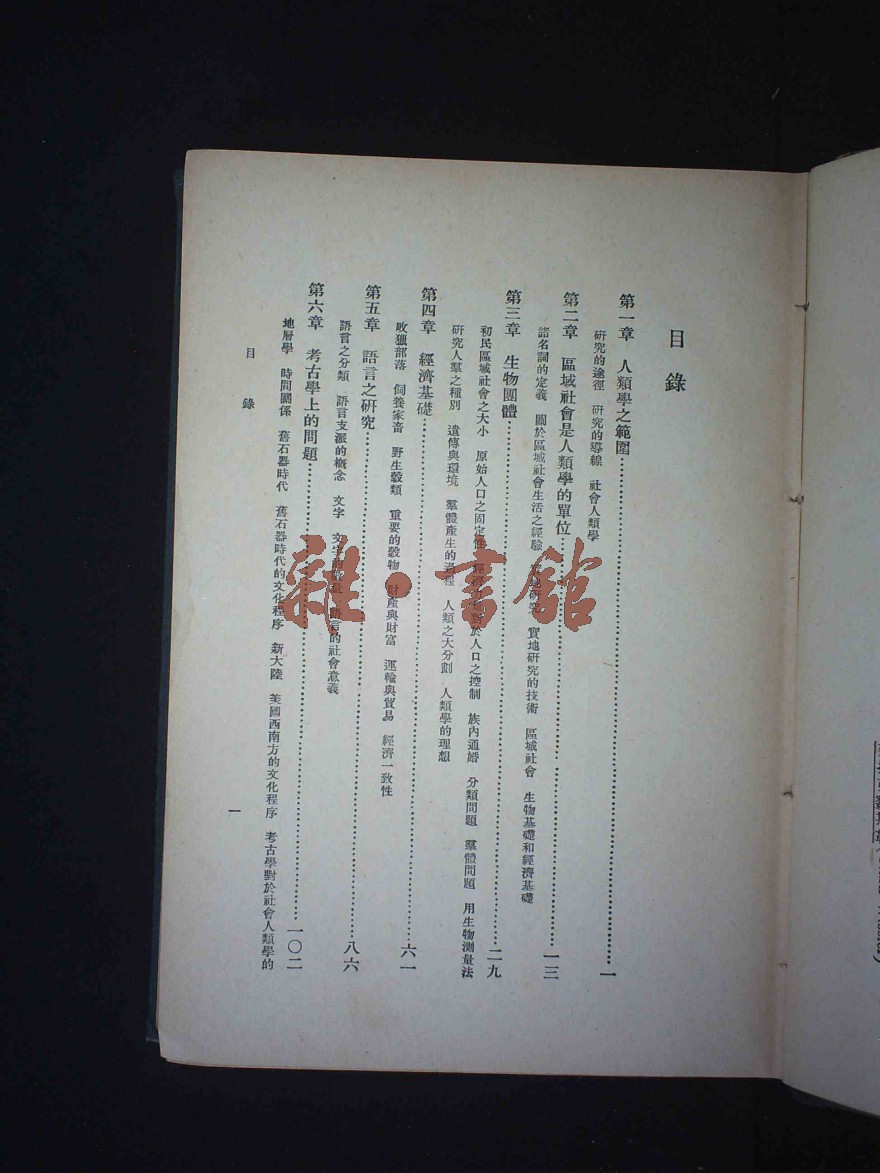 目錄
第一章　人類學之範圍……一
研究的途徑　研究的導線　社會人類學
第二章　區域社會是人類學的單位……一三
諸名詞的定義　關於區域社會生活之經驗　實地研究的技術　區域社會　生物基礎和經濟基礎
第三章　生物團體……二九
初民區域社會之大小　原始人口之固定　對於人口之控制　族內通婚　分類問題　羣體問題　用生物測量法
研究人羣之種別　遺傳與環境　羣體產生的過程　人類之大分劃　人類學的理想
第四章　經濟基礎……六一
畋獵部落　飼養家畜　野生穀類　重要的穀物　財產與財富　運輸與貿易　經濟一致性
第五章　語言之研究……八六
語言之分類　語言支派的概念　文字　語言的社會意義
第六章　考古學上的問題……一〇二
地層學　時間關係　舊石器時代　舊石器時代的文化程序　新大陸　美國西南方的文化程序　考古學對於社會人類學的
目錄
一
雜·書館